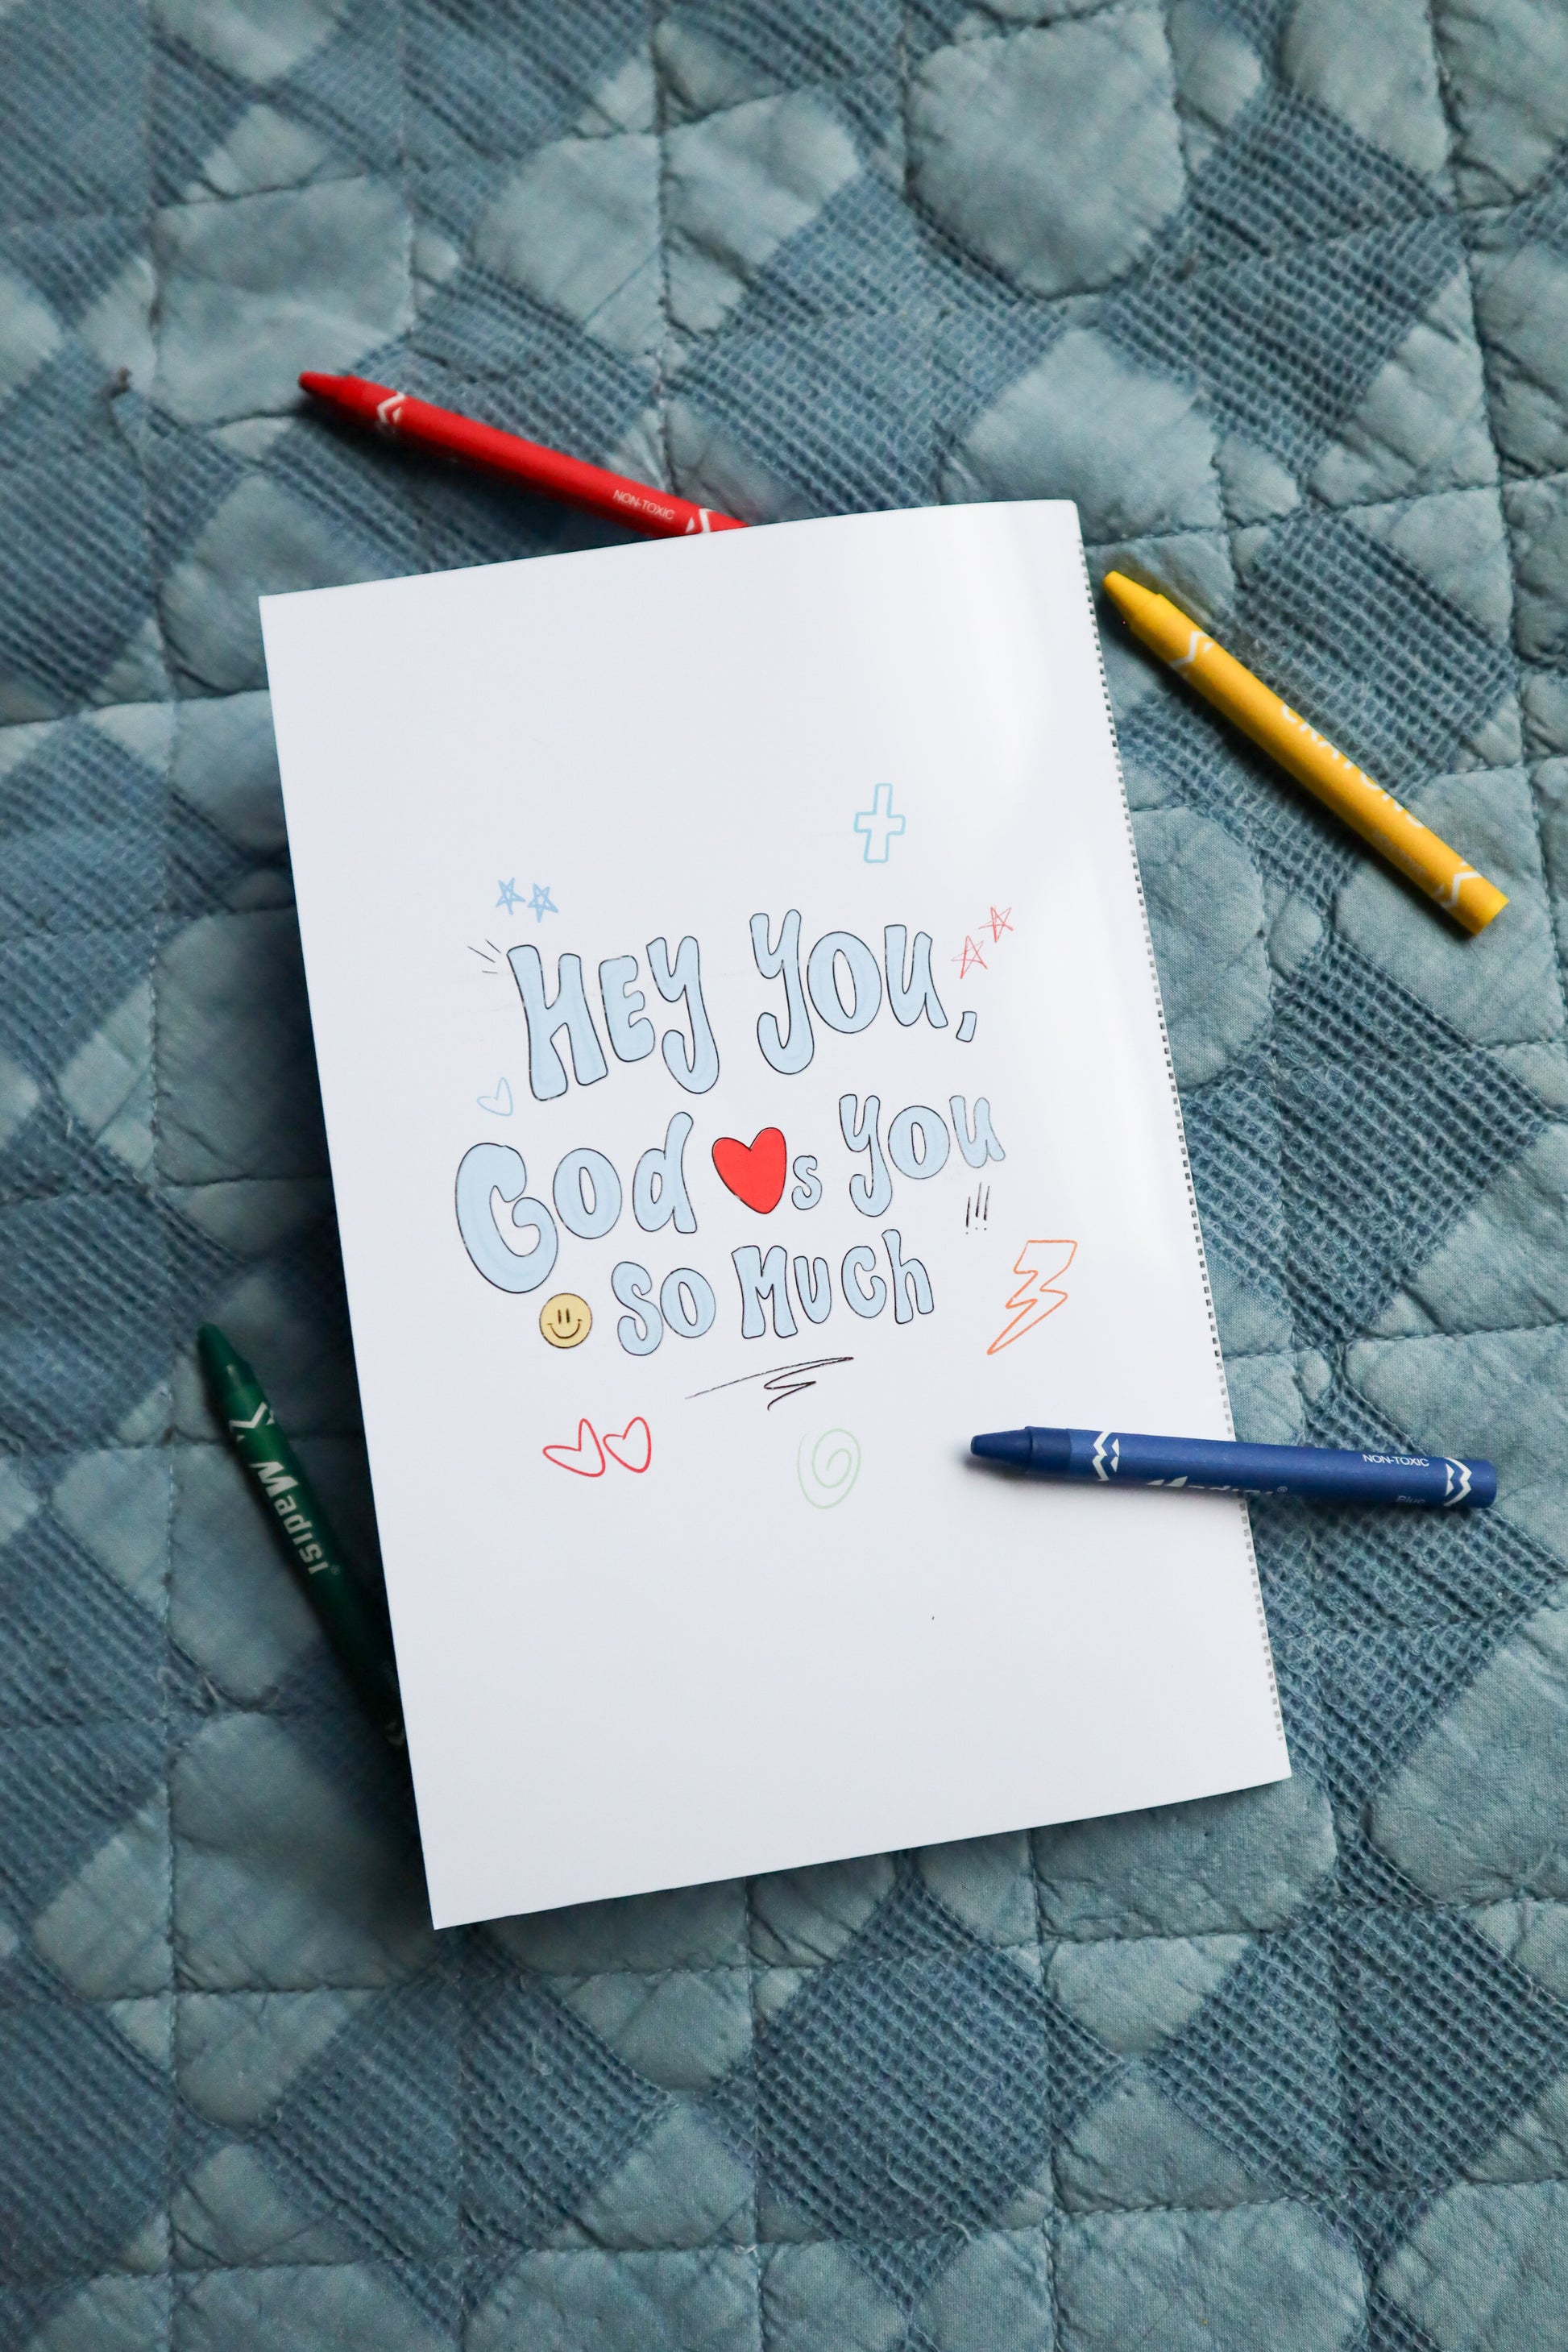 NON-TOXIC
CRAYONS
HEY YOU,
God ❤s you
so Much
!!!
Madisi®
NON-TOXIC
Madisi®
Blue